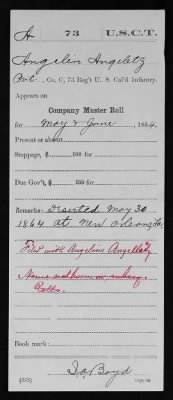 A 73 U.S.C.T.
Angelin Angeletz
Pvt., Co. C, 73 Reg't U. S. Col'd Infantry.
Appears on
Company Muster Roll
for May & June, 1864.
Present or absent
Stoppage, $ 100 for
Due Gov't, $ 100 for
Remarks: Deserted May 30
1864 at New Orleans La
Filed with Angelino Angellaty
Name not borne on subseq.
Rolls.
Book mark:
S. A. Boyd
(358) Copyist.